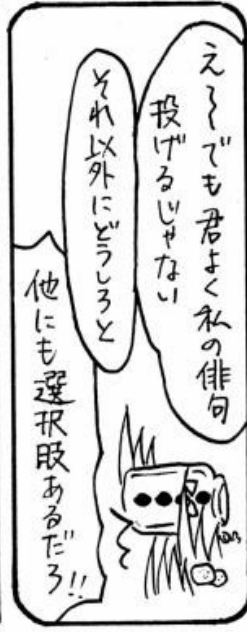 え〜でも君よく私の俳句
投げるじゃない
それ以外にどうしろと
他にも選択肢あるだろ!!